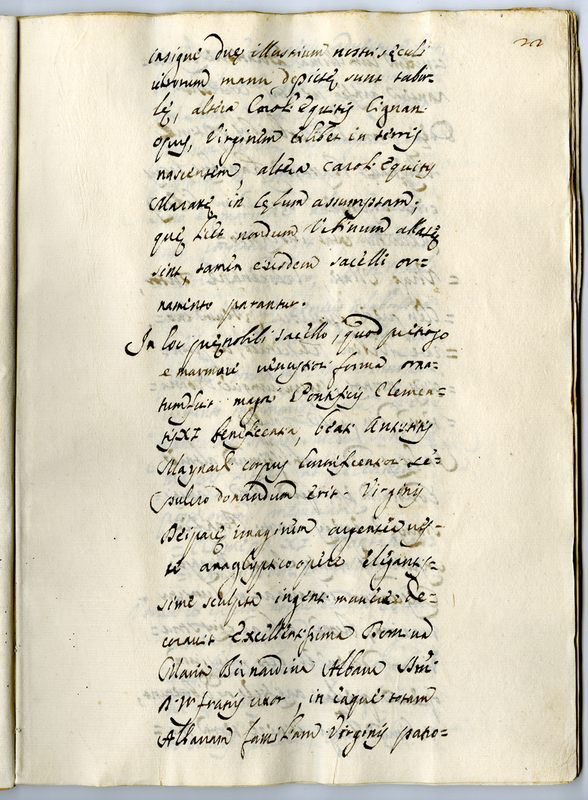 22
insigne duę illustrium nostri sęculi
virorum manu depictę sunt tabu=
lę, altera Carol. Equitis Cignan.
opus, Virginem exhibet in terris
nascentem, altera Carol. Equitis
Maratę in cęlum assumptam;
quę licet nondum Urbinum allatę
sint, tamen eiusdem sacelli or=
namento parantur.
In loc pręnobili sacello, quod pretioso
e marmore venustior. forma orna=
tum fuit magn. Pontificis Clemen=
tis XI beneficentia, beat.
Maynard. corpus se=
pulcro donandum erit. Virginis
Deiparę imaginem argenteo ves=
te anaglyptico opere elegantis=
sime sculpta ingent. de=
coravit Excellentissima Domina
Maria Bernardina Albana
fratris uxor, in eaque totam
Albanam familiam Virginis patro=